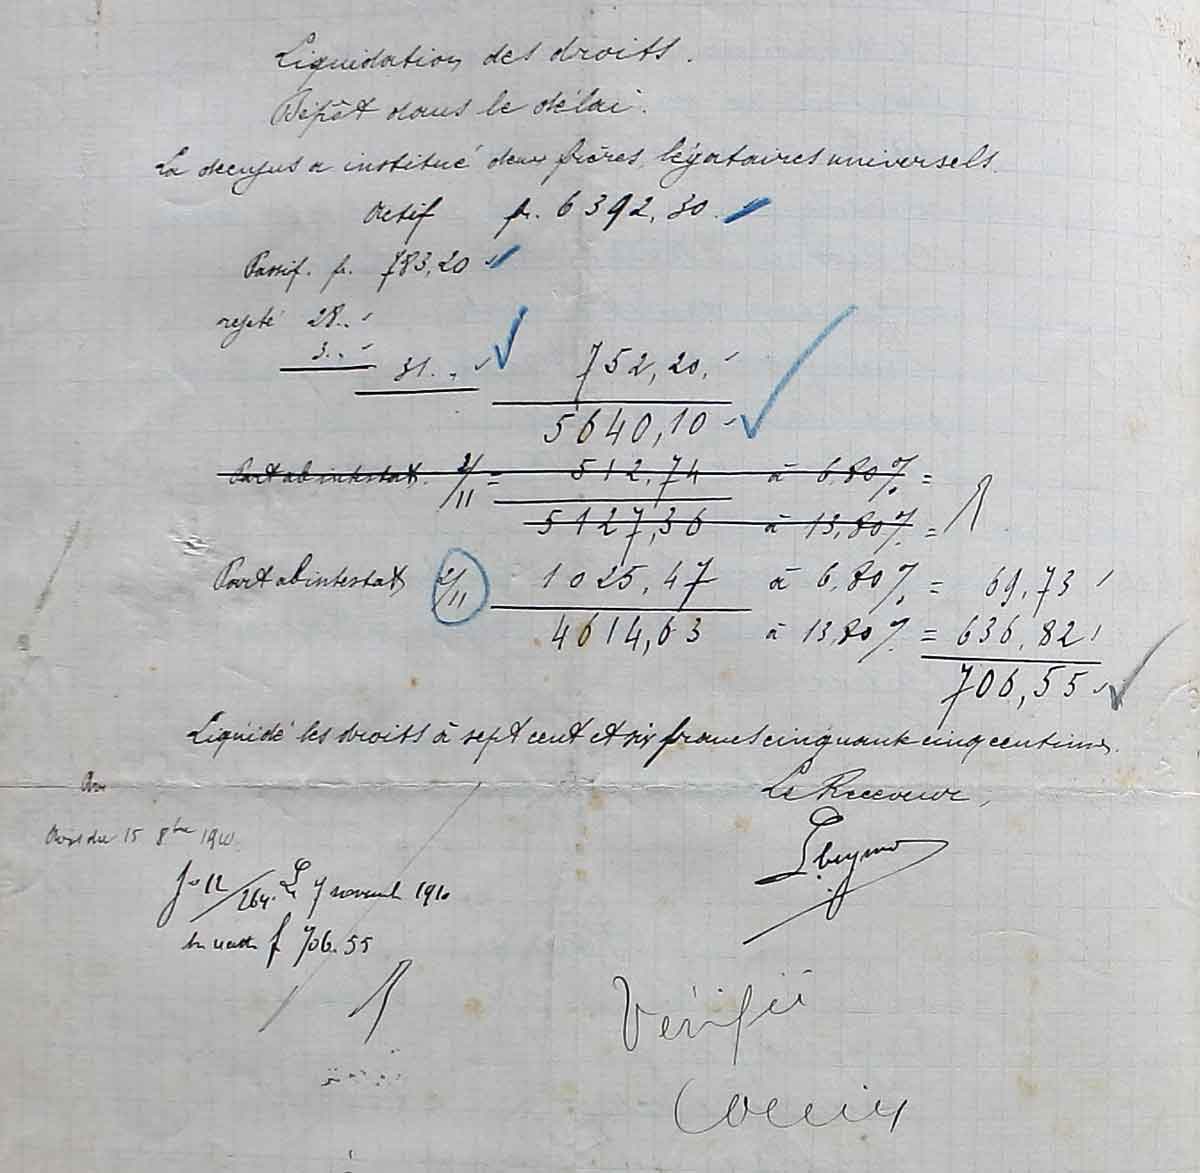 Liquidation des droits.
Dépôt dans le délai.
Le decujus a institué deux frères, légataires universels.
Actif fr. 6392,30.
Passif. fr. 783,20
rejeté 28..
3.. 31.. 752,20.
5640,10
Part ab intestat. 2/11 = 512,74 à 6,80% =
5127,36 à 13,80% =
Part ab intestat 2/11 1025,47 à 6,80% = 69,73
4614,63 à 13,80% = 636,82
706,55
Liquidé les droits à sept cent et six francs cinquante cinq centimes.
Le Receveur,
15 8bre 1910.
264. Le 7 novembre 1910
f 706.55
Vérifié